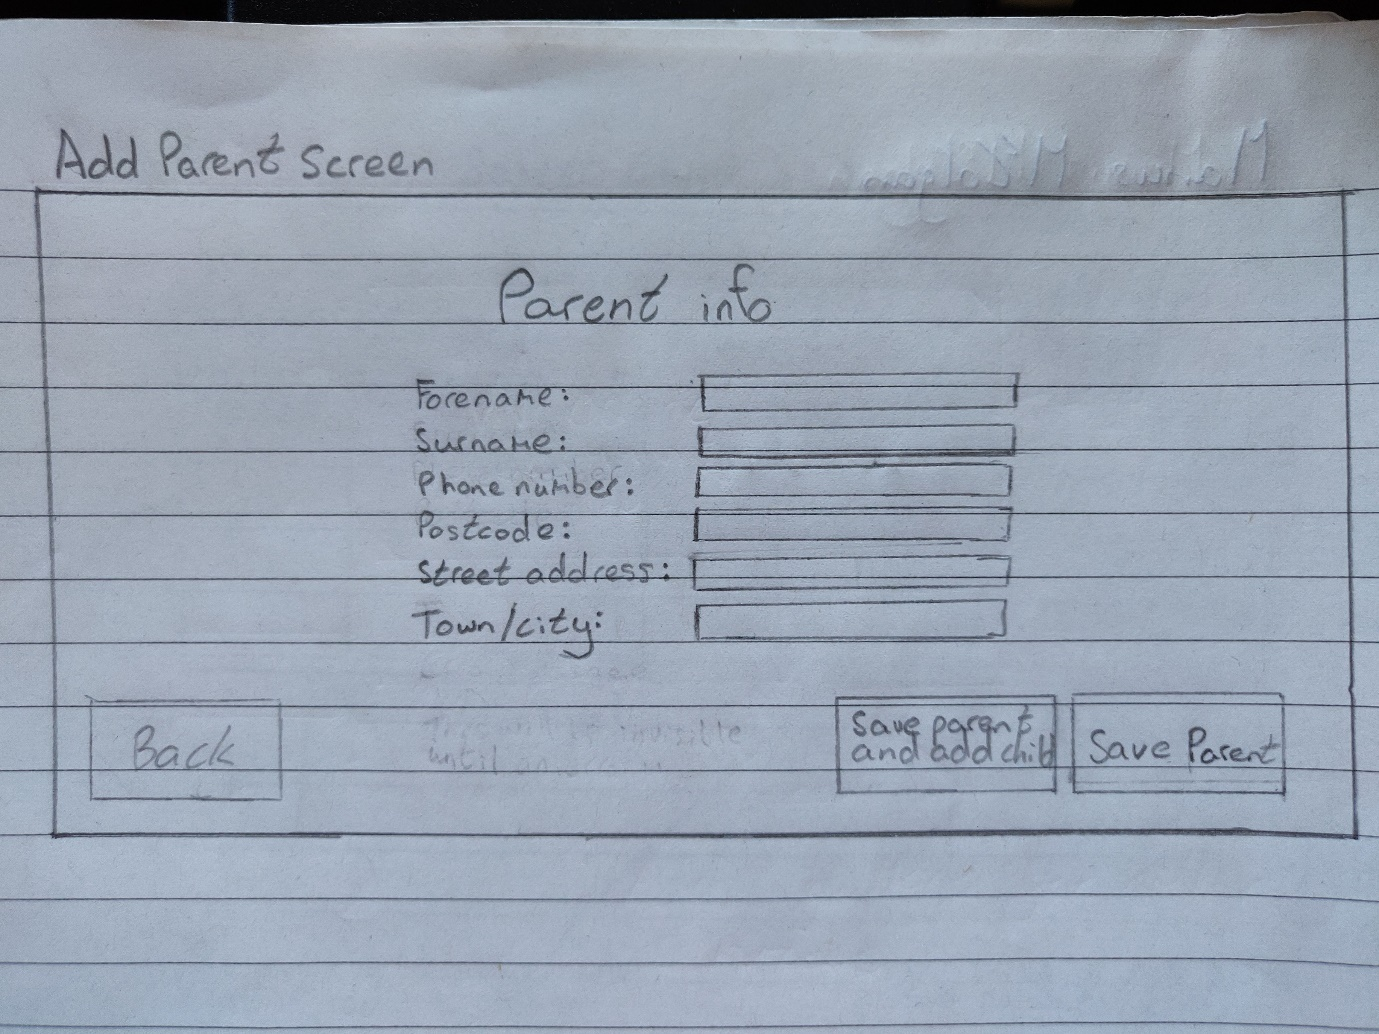 Add Parent Screen
Parent info
Forename:
Surname:
Phone number:
Postcode:
Street address:
Town/city:
Back
Save parent
and add child
Save Parent
invisible
until